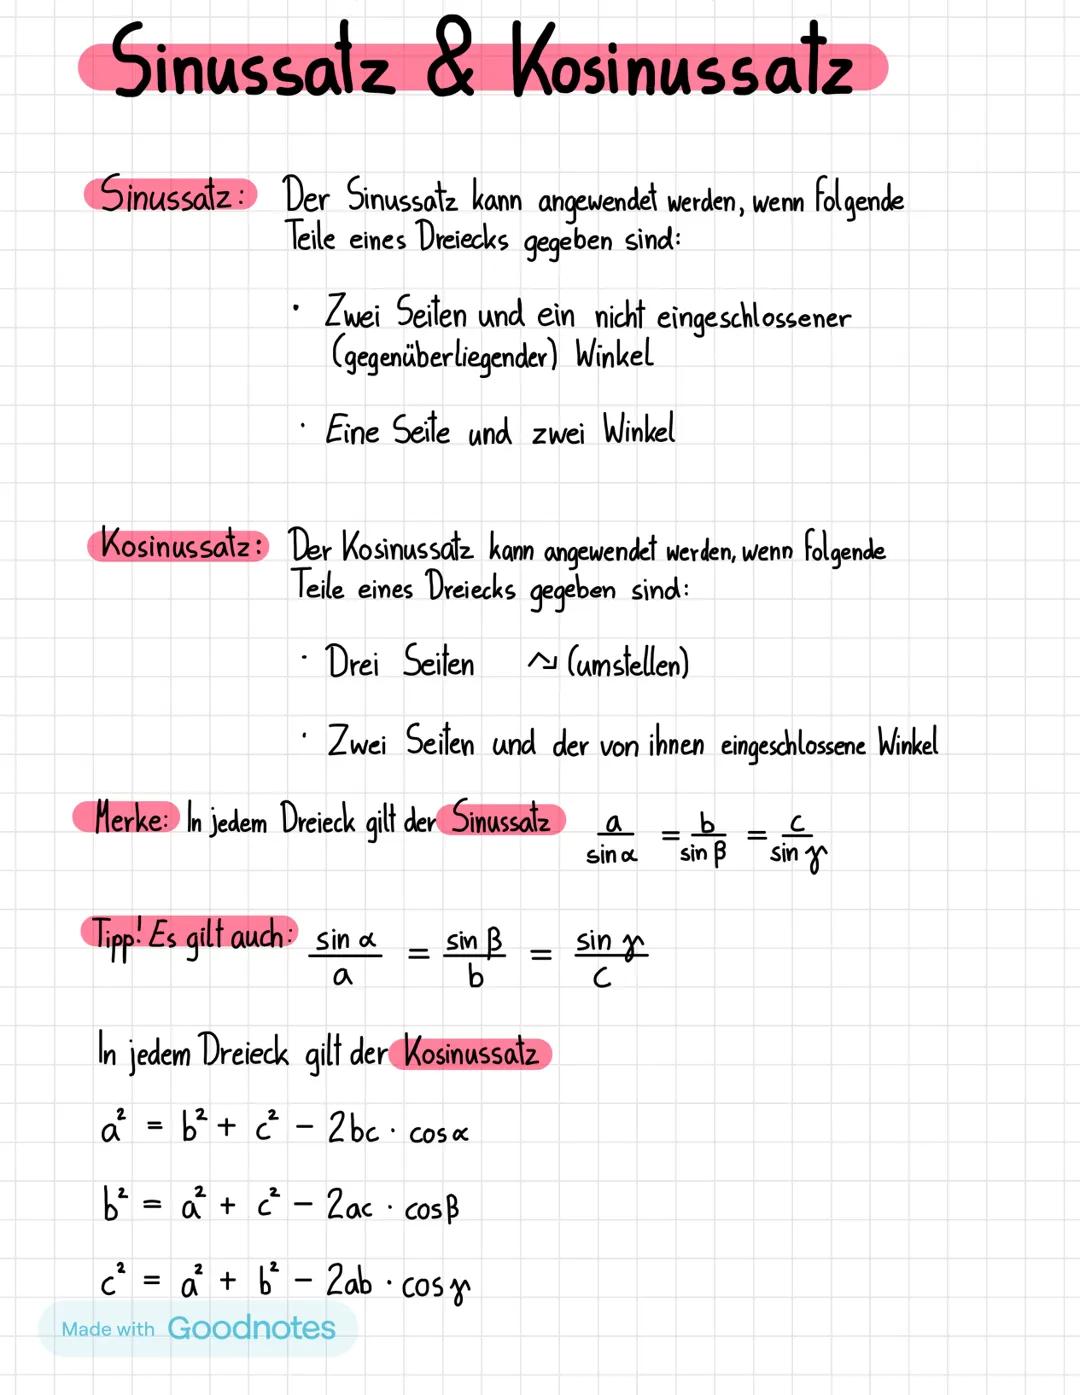 Sinussatz & Kosinussatz
Sinussatz: Der Sinussatz kann angewendet werden, wenn folgende
Teile eines Dreiecks gegeben sind:
· Zwei Seiten und ein nicht eingeschlossener
(gegenüberliegender) Winkel
· Eine Seite und zwei Winkel
Kosinussatz: Der Kosinussatz kann angewendet werden, wenn folgende
Teile eines Dreiecks gegeben sind:
· Drei Seiten ↝ (umstellen)
· Zwei Seiten und der von ihnen eingeschlossene Winkel
Merke: In jedem Dreieck gilt der Sinussatz a/sin α = b/sin β = c/sin γ
Tipp! Es gilt auch: sin α/a = sin β/b = sin γ/c
In jedem Dreieck gilt der Kosinussatz
a² = b² + c² − 2bc · cos α
b² = a² + c² − 2ac · cos β
c² = a² + b² − 2ab · cos γ
Made with Goodnotes